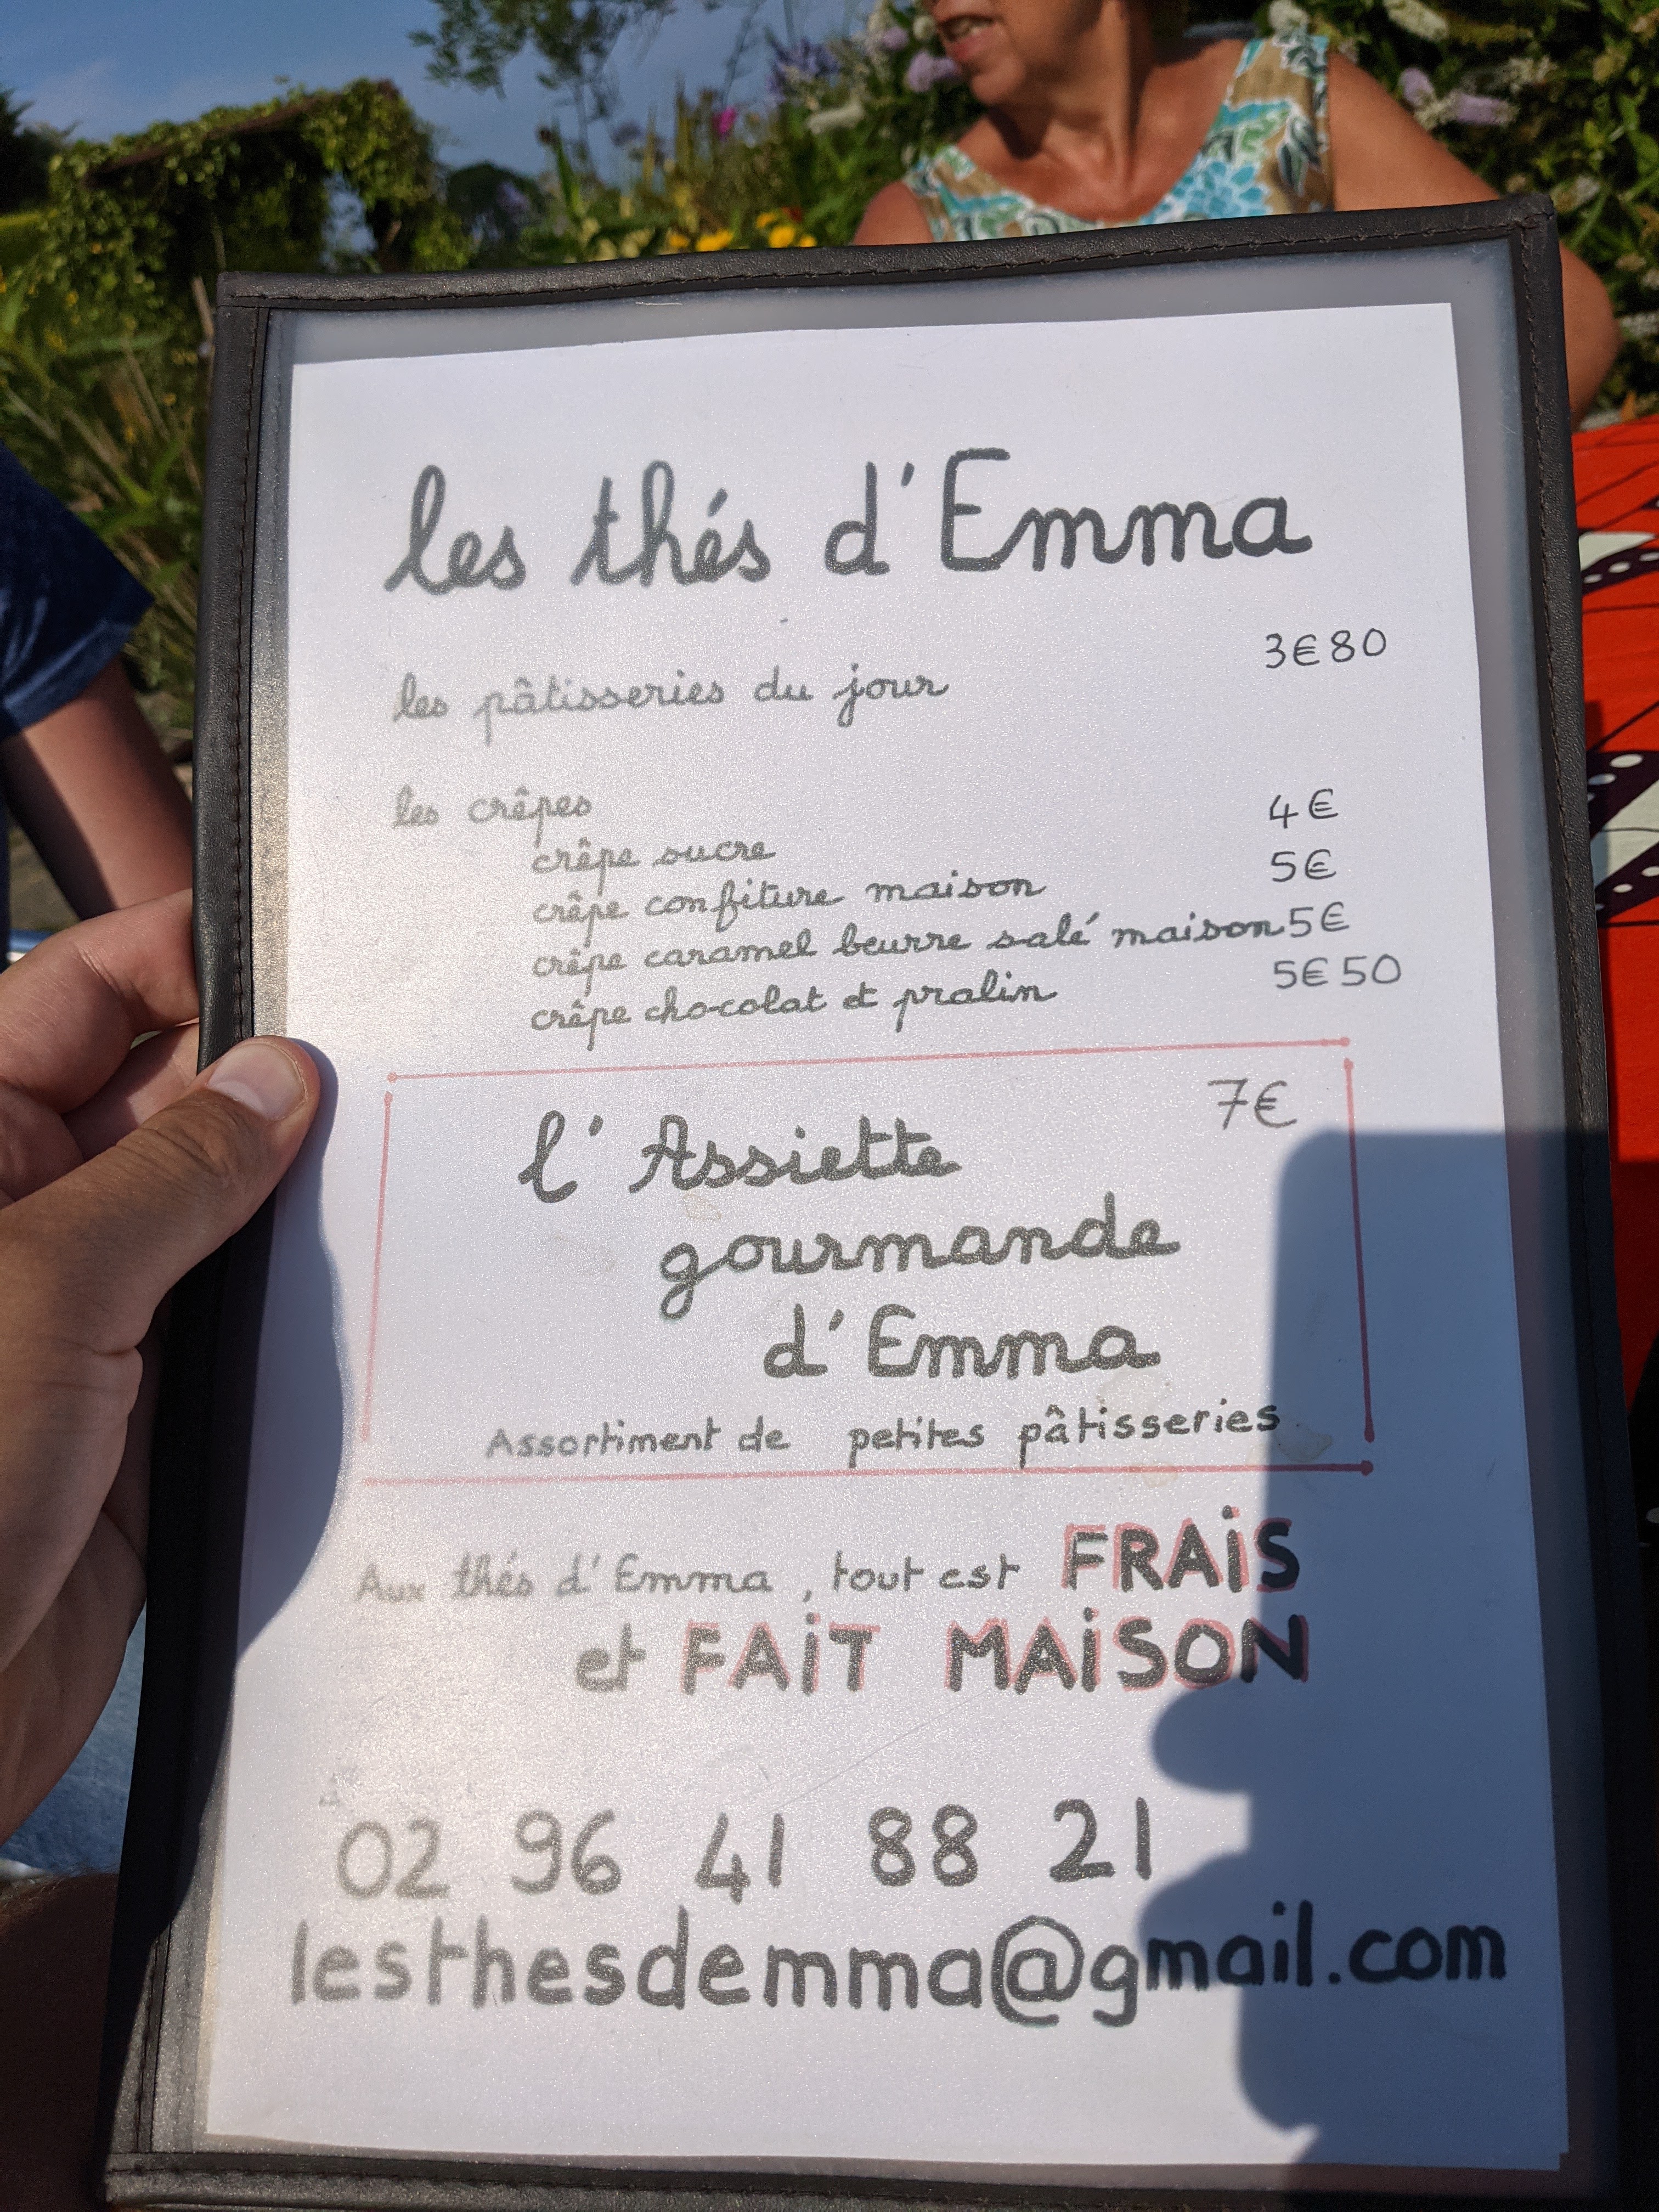 les thés d'Emma
les pâtisseries du jour 3€80
les crêpes
crêpe sucre 4€
crêpe confiture maison 5€
crêpe caramel beurre salé maison 5€
crêpe chocolat et pralin 5€50
l'Assiette 7€
gourmande
d'Emma
Assortiment de petites pâtisseries
Aux thés d'Emma, tout est FRAiS
et FAiT MAiSON
02 96 41 88 21
lesthesdemma@gmail.com